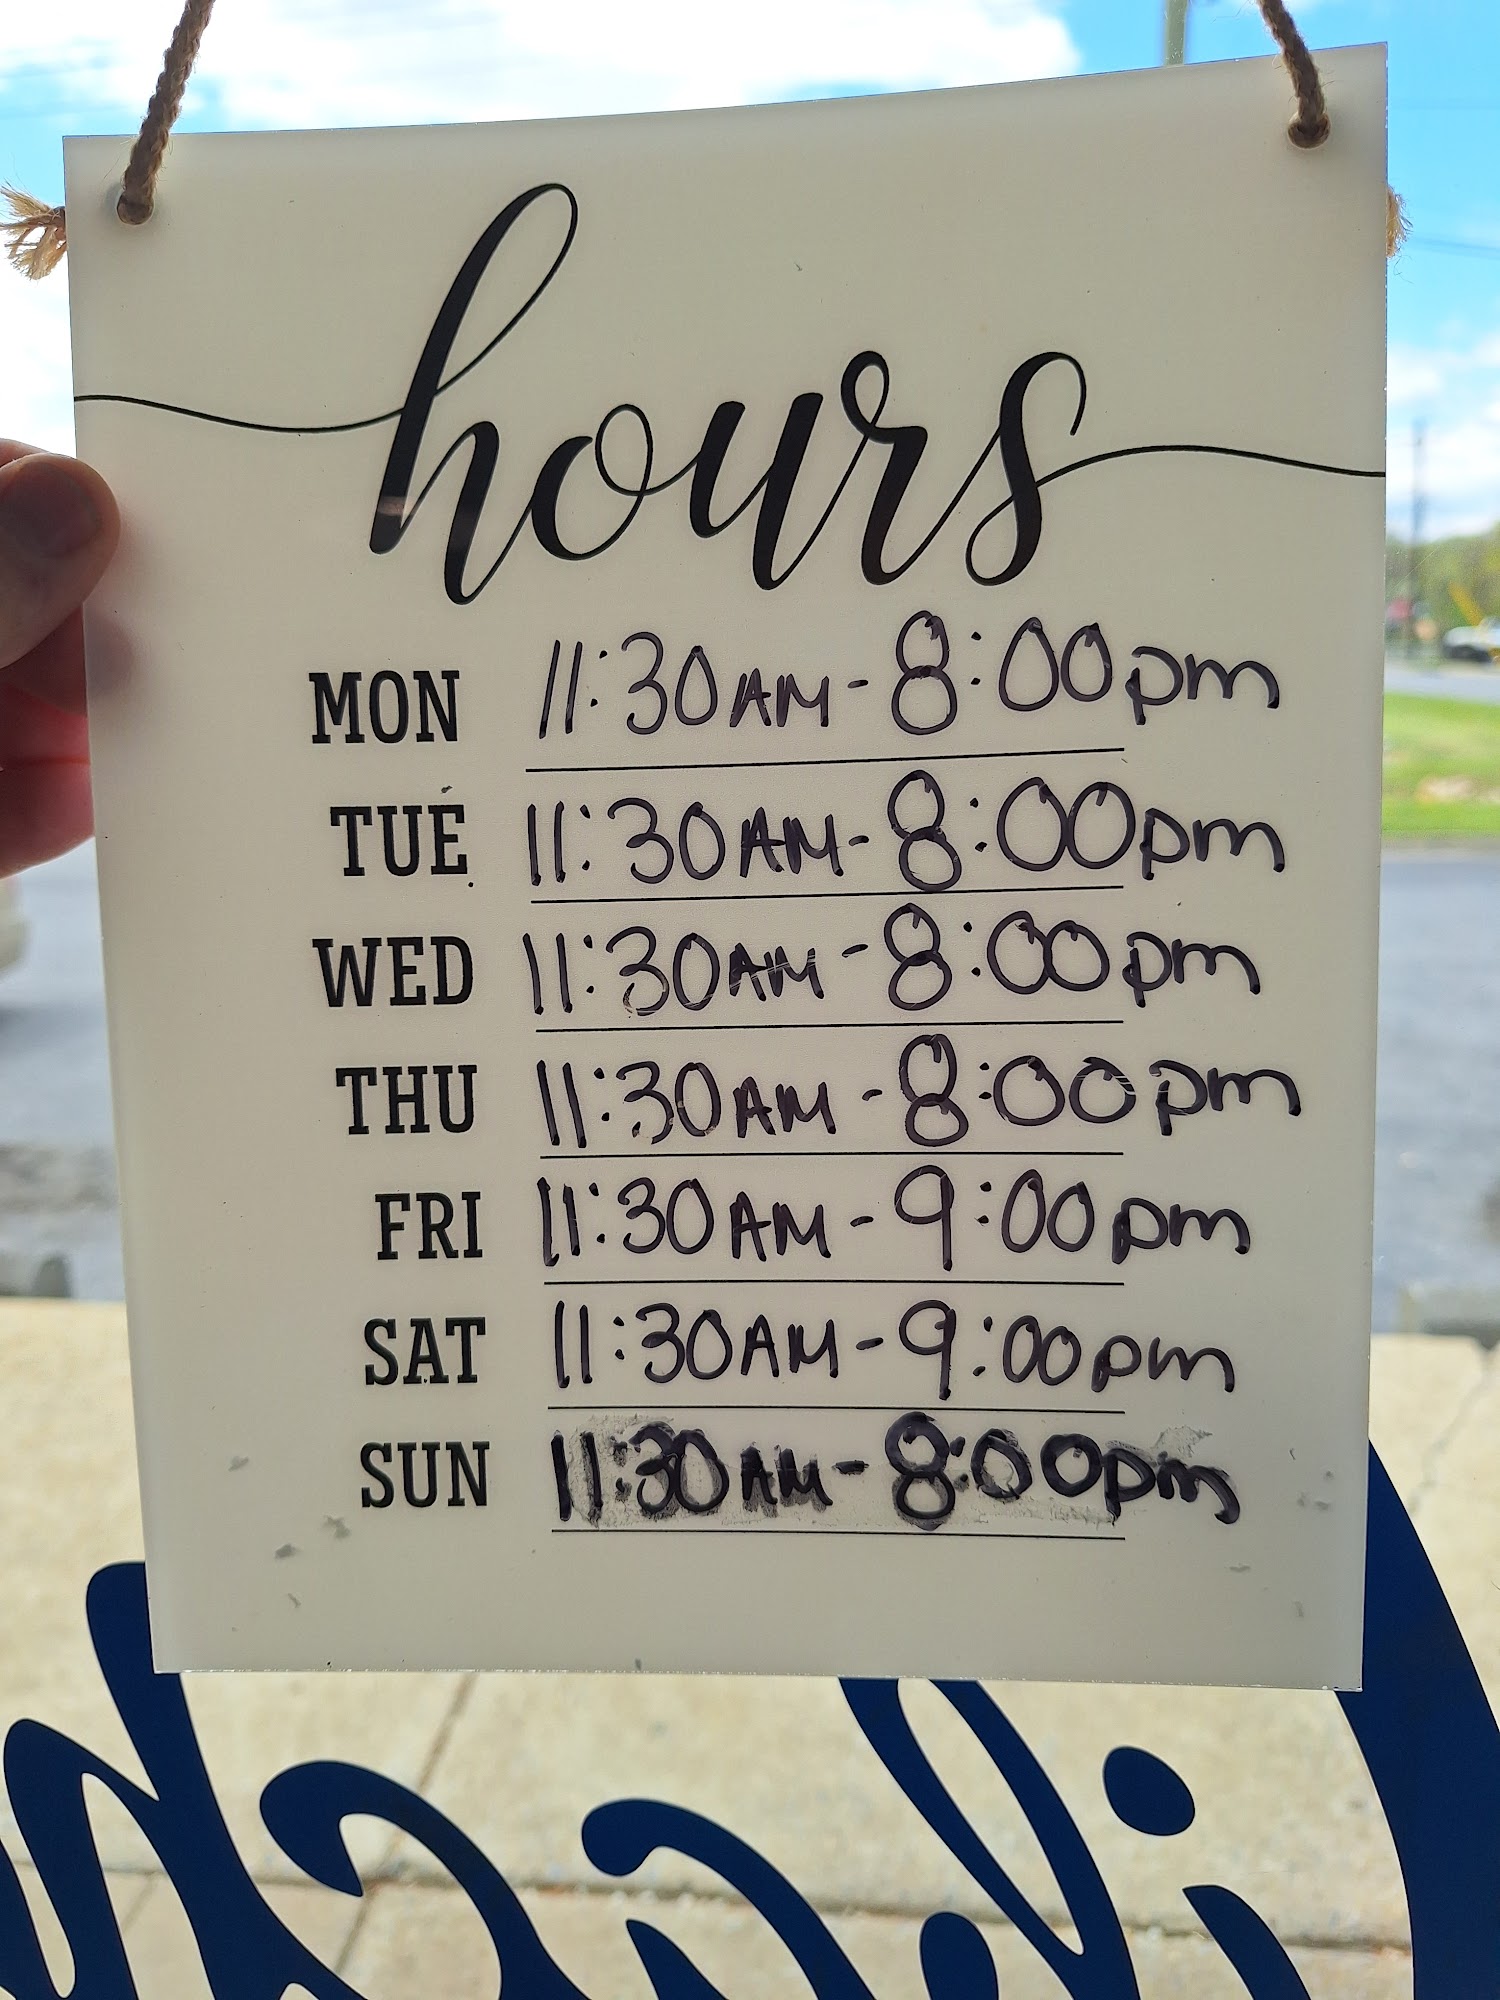 hours
MON 11:30AM - 8:00pm
TUE 11:30AM - 8:00pm
WED 11:30AM - 8:00pm
THU 11:30AM - 8:00pm
FRI 11:30AM - 9:00pm
SAT 11:30AM - 9:00pm
SUN 11:30AM - 8:00pm